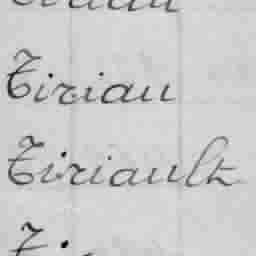 Tirian
Tiriault
Ti